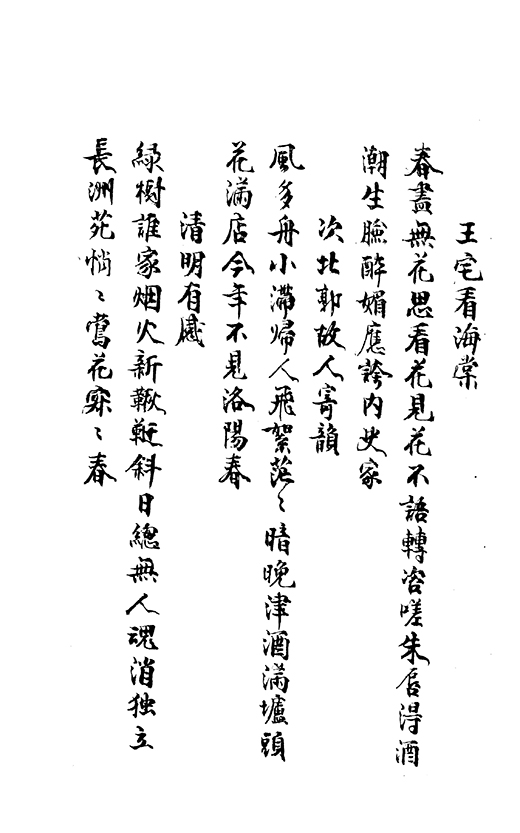 王宅看海棠
春盡無花思看花見花不語轉咨嗟朱唇得酒
潮生臉醉媚應誇内史家
次北郭故人寄韻
風多舟小滯歸人飛絮茫〻暗晚津酒滿壚頭
花滿店今年不見洛陽春
清明有感
綠樹誰家烟火新鞦韆斜日總無人魂消独立
長洲苑悄〻鶯花寂〻春